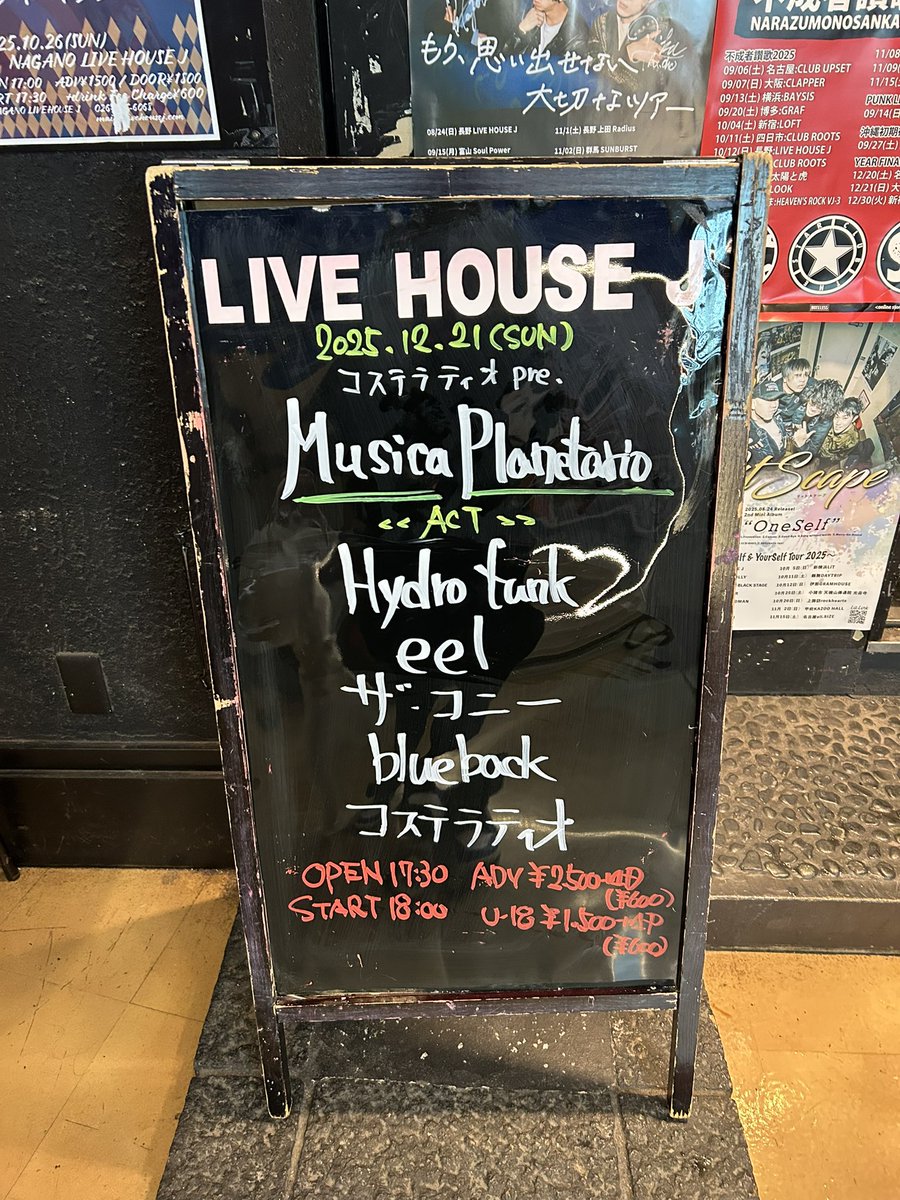 25.10.26(SUN)
NAGANO LIVE HOUSE J
17:00 ADV¥1500 / DOOR¥1500
17:30 +Drink Fee Charge¥600
もう、思い出せない
大切なツアー
08/24(日) 長野 LIVE HOUSE J
11/1(土) 長野 上田 Radius
09/15(月) 富山 Soul Power
11/02(日) 群馬 SUNBURST
NARAZUMONOSANKA
不成者讃歌2025
09/06(土) 名古屋:CLUB UPSET
09/07(日) 大阪:CLAPPER
09/13(土) 横浜:BAYSIS
09/20(土) 博多:GRAF
10/04(土) 新宿:LOFT
10/11(土) 四日市:CLUB ROOTS
10/12(日) 長野:LIVE HOUSE J
CLUB ROOTS
太陽と虎
LOOK
HEAVEN'S ROCK VJ-3
11/08
11/09
11/15(土)
PUNK
沖縄初期
09/27(土)
YEAR FINA
12/20(土)
12/21(日)
12/30(火)
LIVE HOUSE J
2025.12.21(SUN)
コステラティオ pre.
Musica Planetario
<< ACT >>
Hydro funk
eel
ザ・コニー
blueback
コステラティオ
OPEN 17:30 ADV ¥2500+1D
(¥600)
START 18:00 U-18 ¥1.500+1D
(¥600)
Scape
2025.08.26 Release!
2nd Mini Album
"OneSelf"
elf & YourSelf Tour 2025~